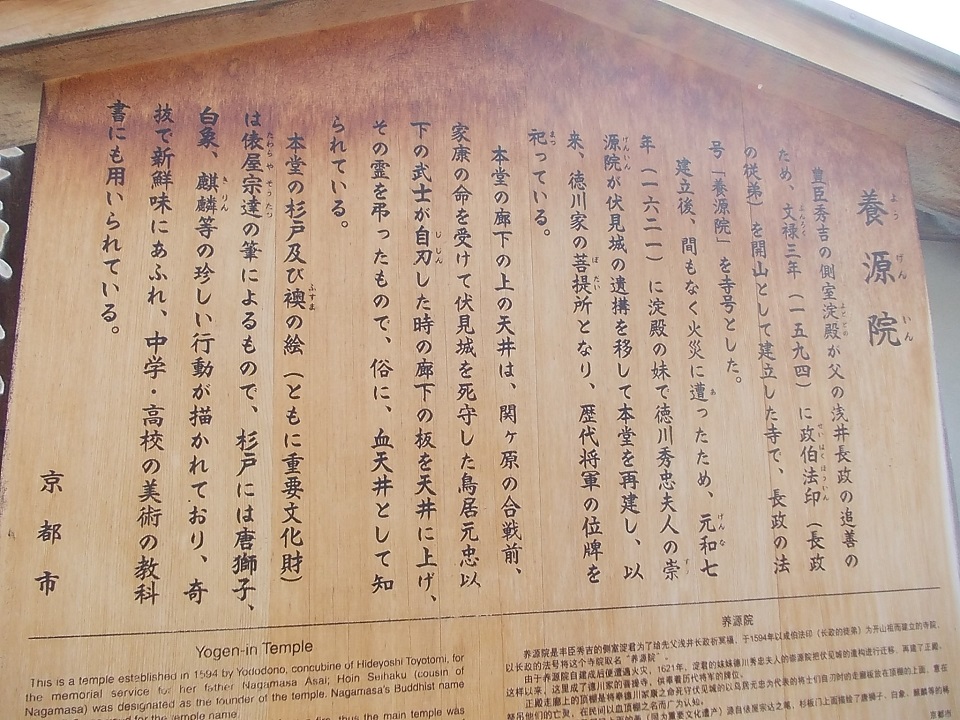 養源院
よう げん いん
豊臣秀吉の側室淀殿が父の浅井長政の追善の
ため、文禄三年（一五九四）に政伯法印（長政
の従弟）を開山として建立した寺で、長政の法
号「養源院」を寺号とした。
建立後、間もなく火災に遭ったため、元和七
年（一六二一）に淀殿の妹で徳川秀忠夫人の崇
源院が伏見城の遺構を移して本堂を再建し、以
来、徳川家の菩提所となり、歴代将軍の位牌を
祀っている。
本堂の廊下の上の天井は、関ヶ原の合戦前、
家康の命を受けて伏見城を死守した鳥居元忠以
下の武士が自刃した時の廊下の板を天井に上げ、
その霊を弔ったもので、俗に、血天井として知
られている。
本堂の杉戸及び襖の絵（ともに重要文化財）
は俵屋宗達の筆によるもので、杉戸には唐獅子、
白象、麒麟等の珍しい行動が描かれており、奇
抜で新鮮味にあふれ、中学・高校の美術の教科
書にも用いられている。
京都市
Yogen-in Temple
This is a temple established in 1594 by Yododono, concubine of Hideyoshi Toyotomi, for
the memorial service for her father Nagamasa Asai; Hoin Seihaku (cousin of
Nagamasa) was designated as the founder of the temple. Nagamasa's Buddhist name
for the temple name.
fire, thus the main temple was
养源院
养源院是丰臣秀吉的侧室淀君为了给先父浅井长政祈冥福，于1594年以成伯法印（长政的徒弟）为开山祖而建立的寺院，
以长政的法号将这个寺院取名“养源院”。
由于养源院自建成后便遭遇火灾，1621年，淀君的妹妹德川秀忠夫人的崇源院把伏见城的遗构进行迁移，再建了正殿，
这样以来，这里成了德川家的菩提寺，供奉着历代将军的牌位。